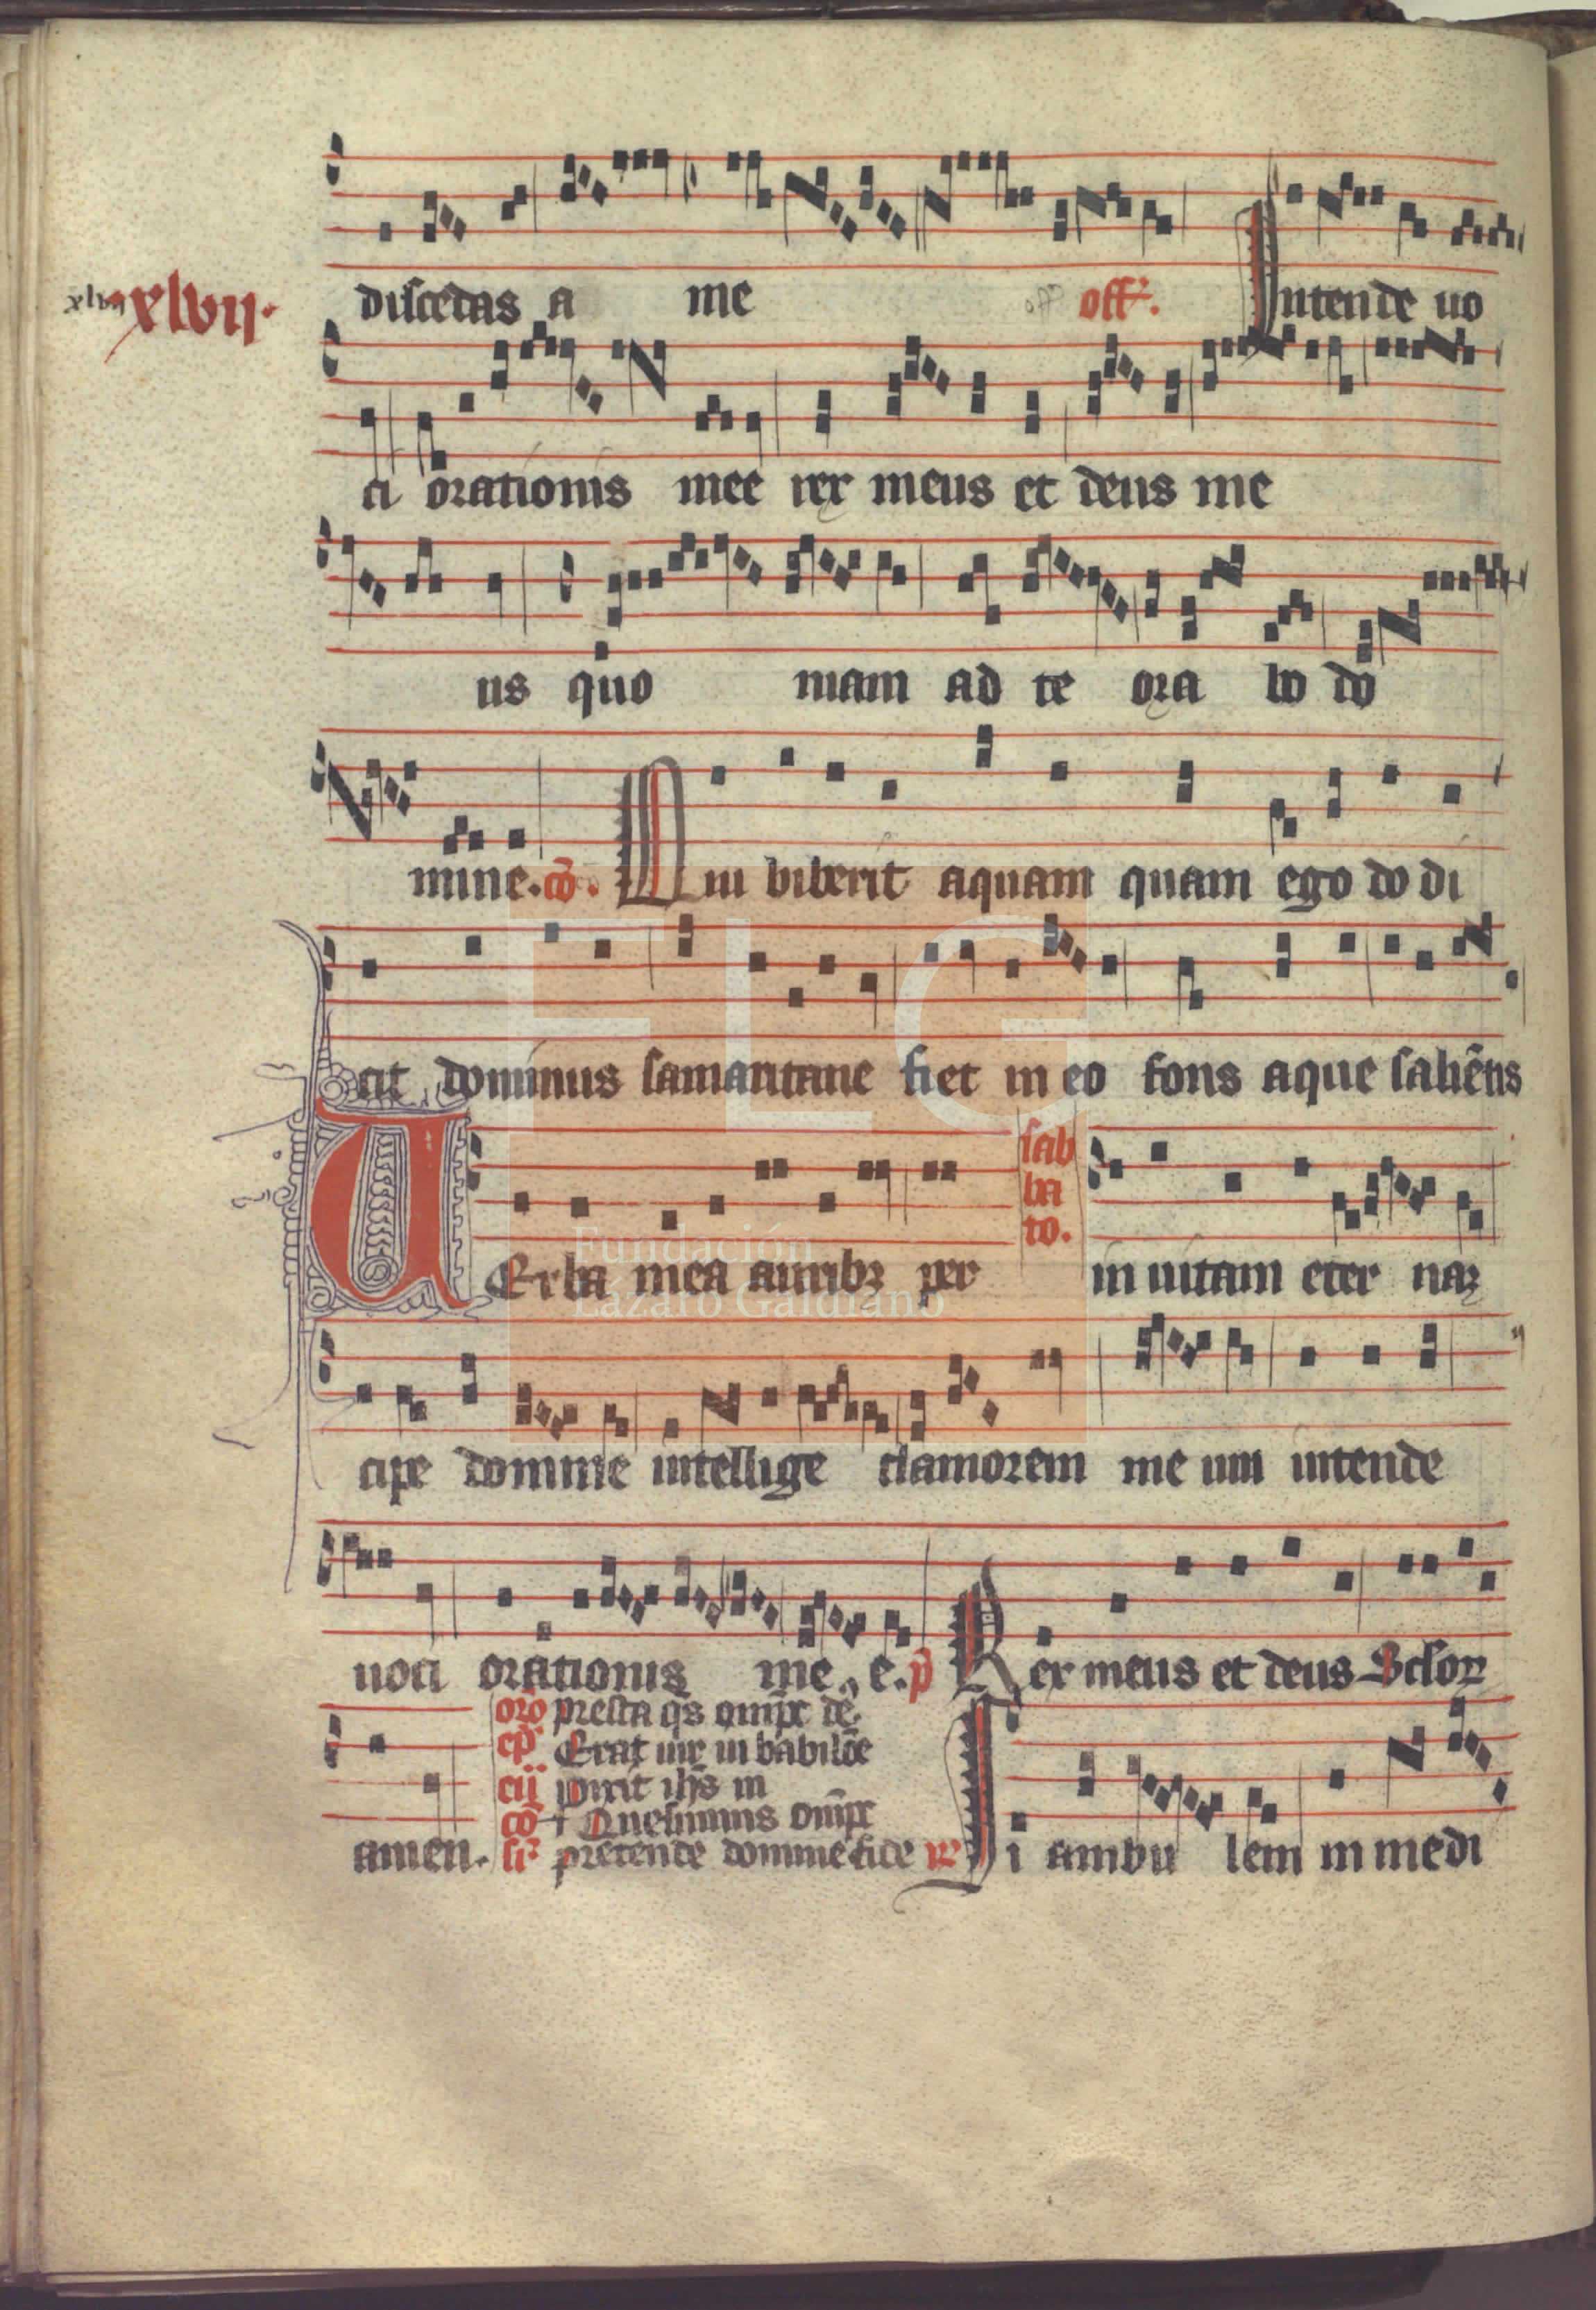 xlvii xlvii.
discedas a me off off. Intende uo
ci orationis mee rex meus et deus me
us quo niam ad te ora bo do
mine. cō. Qui biberit aquam quam ego do di
cit dominus samaritane fiet in eo fons aque saliēns
sab
ba
to.
Verba mea auribꝫ per in uitam eter naꝫ
cipe domine intellige clamorem me um intende
uoci orationis me e. p̄ Rex meus et deus Scloꝝ
oro presta qs omp̄s dē
ep̄ Erat uir in babilōe
eū pirexit ihs in
cō + Quesumus omp̄s
amen. sr̄ pretende domine fide ℟ Si ambu lem in medi
FLG
Fundación
Lázaro Galdiano